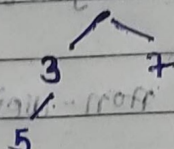 3 7
5